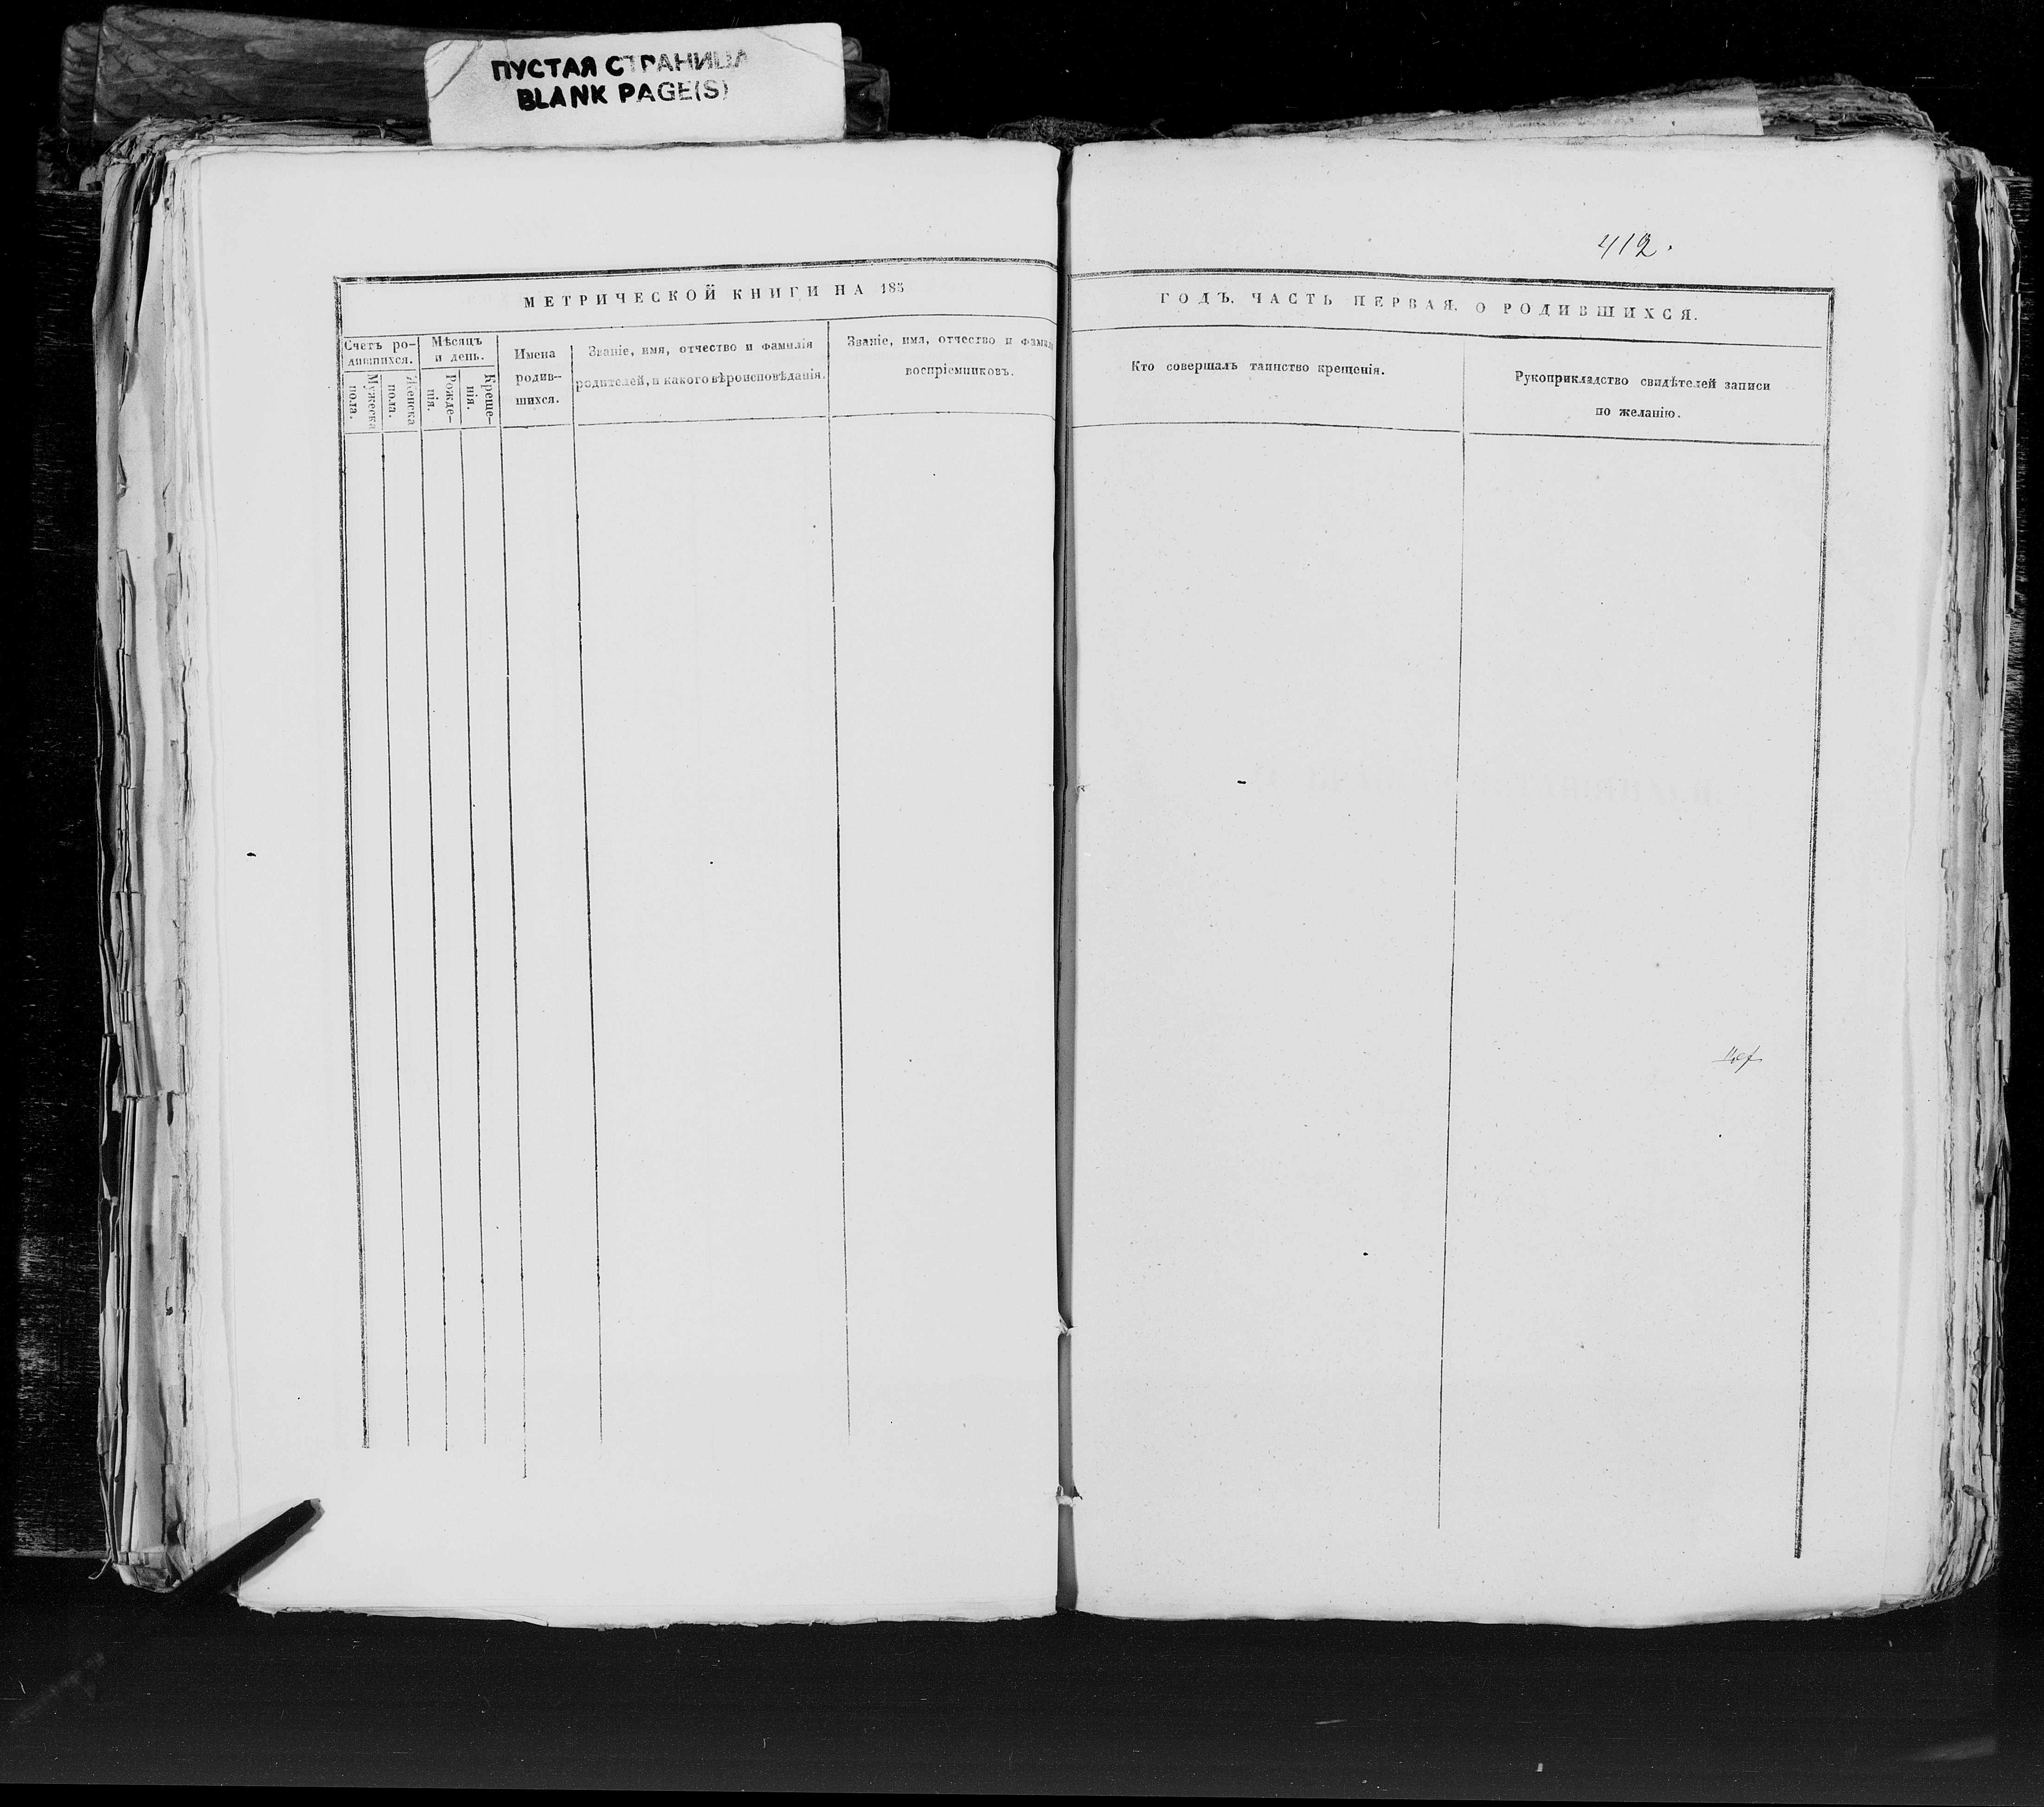 ПУСТАЯ СТРАНИЦА
BLANK PAGE(S)
412.
МЕТРИЧЕСКОЙ КНИГИ НА 183
ГОДЪ. ЧАСТЬ ПЕРВАЯ. О РОДИВШИХСЯ.
Счетъ ро-
дившихся.
Мужеска
пола.
Женска
пола.
Мѣсяцъ
и день.
Рожде-
нія.
Креще-
нія.
Имена
родив-
шихся.
Званіе, имя, отчество и фамилія
родителей, и какого вѣроисповѣданія.
Званіе, имя, отчество и фамилія
воспріемниковъ.
Кто совершалъ таинство крещенія.
Рукоприкладство свидѣтелей записи
по желанію.